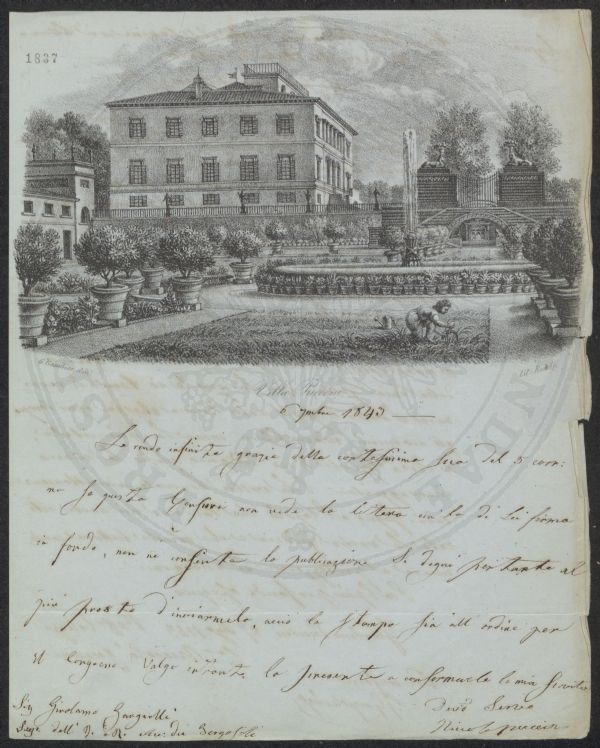 1837
Villa Puccini
6 7mbre 1843
Le rendo infinite grazie della cortesissima sua del 5 corr:
ma se questa Censura non vede la lettera con la di Lei firma
in fondo, non ne consente la publicazione. Si degni pertanto al
più presto d'inviarmela, acciò la stampa sia all' ordine per
il Congresso. Valga intanto la presente a confermarle la mia servitù
Devo Servo
Niccolò Puccini
Sig Girolamo
Segr dell' I. e R.